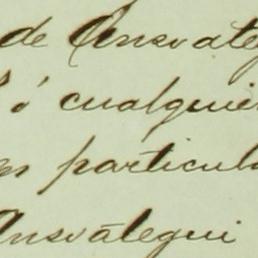 de Ansvateg
ó cualquier
particula
Ansvátegui